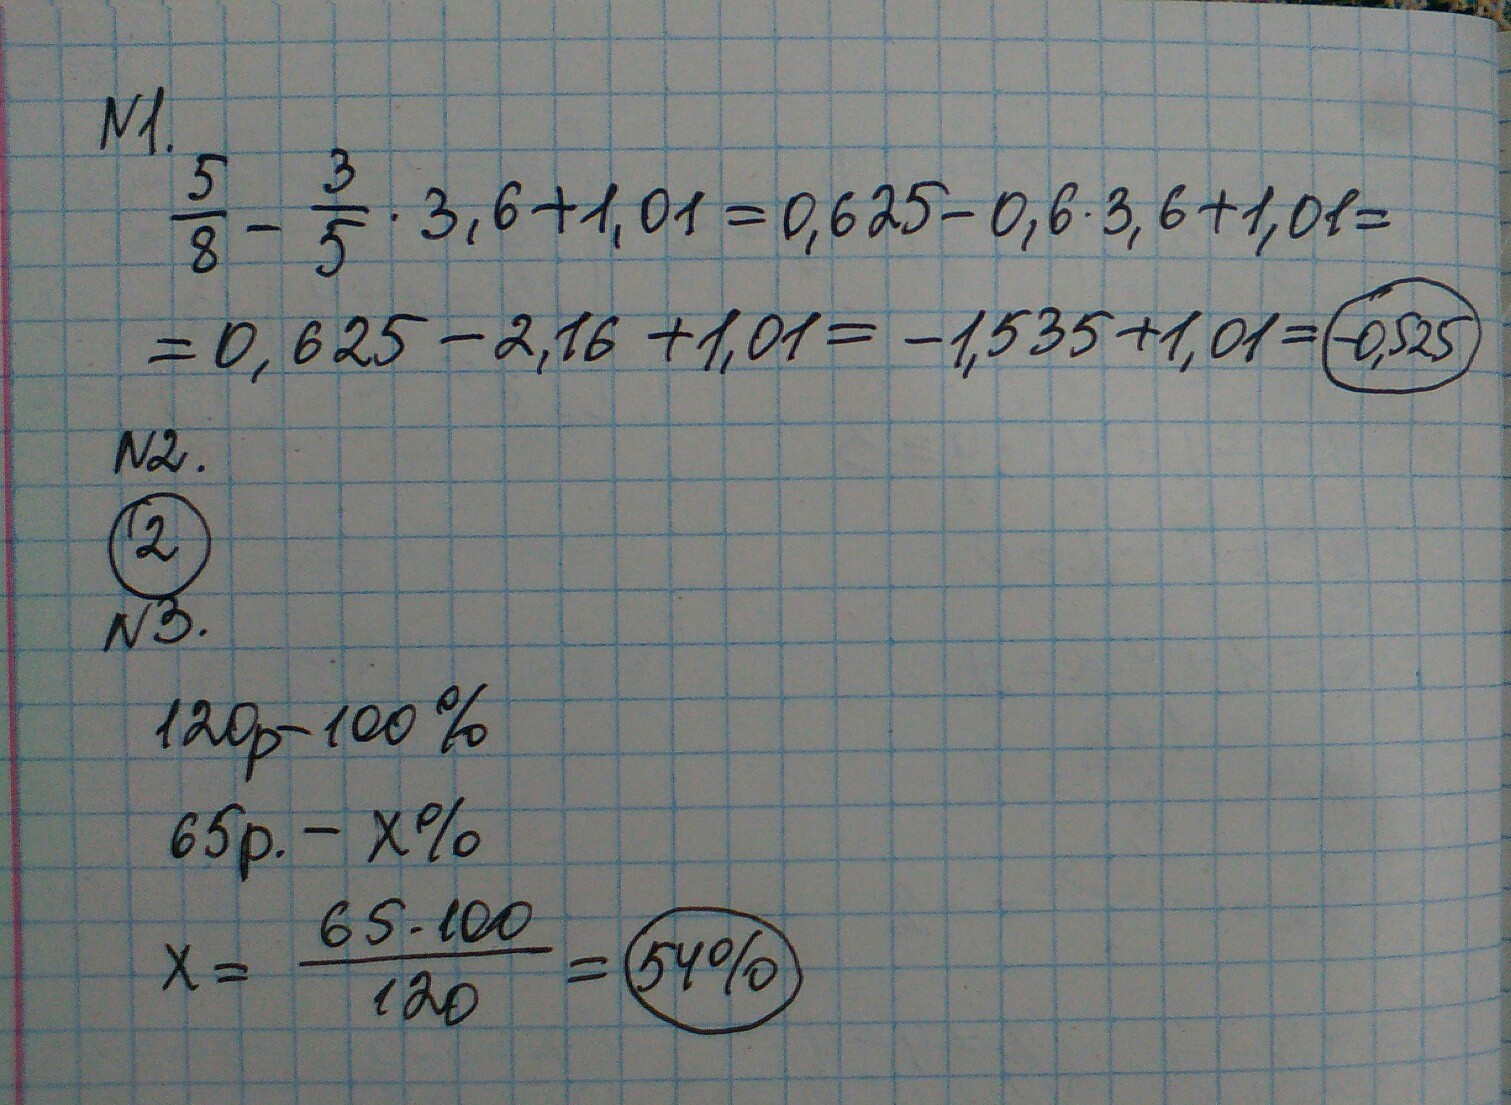 N1.
5/8 - 3/5 · 3,6+1,01 = 0,625 - 0,6·3,6+1,01=
= 0,625 - 2,16 +1,01= -1,535+1,01= -0,525
N2.
2
N3.
120р - 100%
65р. - x%
x = 65·100/120 = 54%